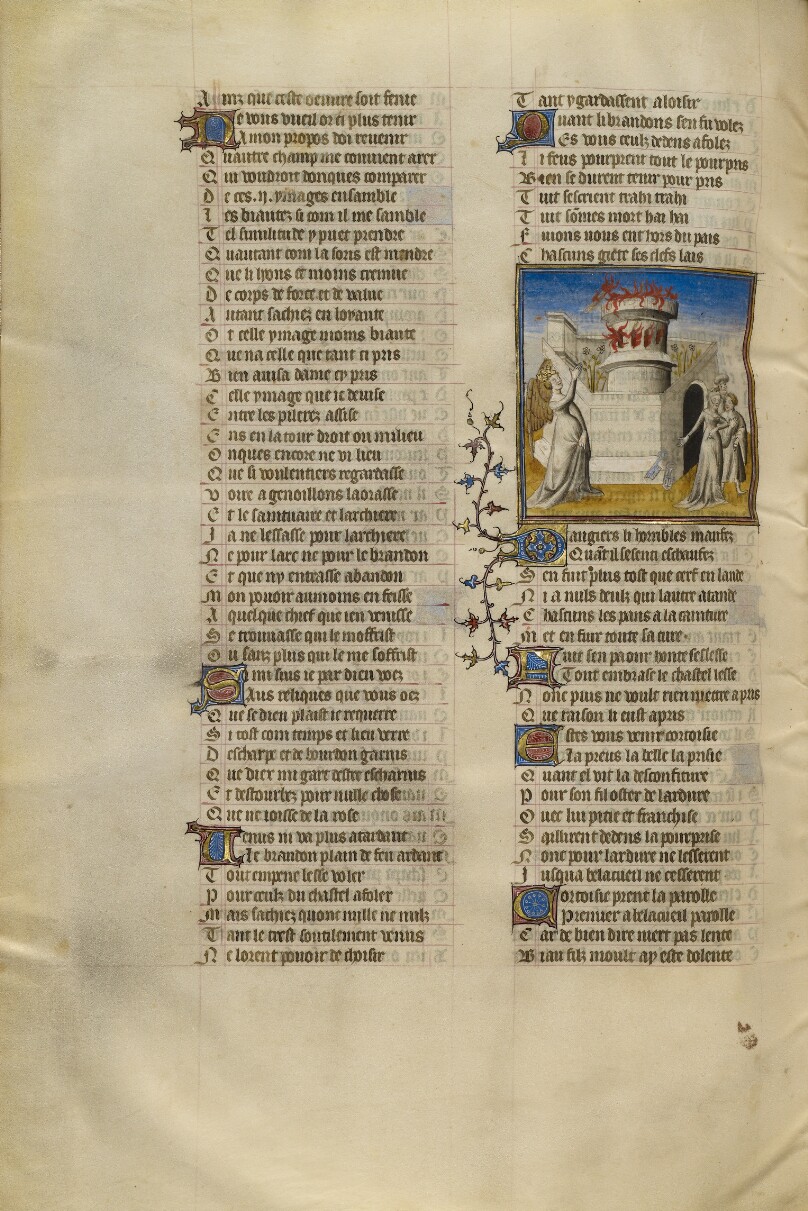 Ainz que ceste oeuure soit fenie
Ne vous vueil or ci plus tenir
A mon propos doi reuenir
Quautre champ me conuient arer
Qui voudroit donques comparer
De ces .ii. ymages ensamble
Les biautez si com il me samble
Tel similitude y puet prendre
Quautant com la soris est mendre
Que li lyons et moins cremue
De corps de force et de value
Autant sachiez en loyaute
Ot celle ymage moins biaute
Que na celle que tant ci pris
Bien auisa dame cypris
Celle ymage que ie deuise
Entre les pilerez assise
Ens en la tour droit ou milieu
Onques encore ne vi lieu
Que si voulentiers regardasse
Voire a genoillons laorasse
Et le saintuaire et larchiere
Ja ne lessasse pour larchiere
Ne pour larc ne pour le brandon
Et que ny entrasse abandon
Mon pouoir au moins en feisse
A quelque chief que ien venisse
Se trouuasse qui le moffrist
Ou sanz plus qui le me soffrist
Si mi sius ie par dieu voez
Aus reliques que vous oez
Que se dieu plaist ie requerre
Si tost com temps et lieu verre
Descharpe et de bourdon garnis
Que diex mi gart destre escharnis
Et destourbez pour nulle chose
Que ne ioisse de la rose
Uenus ni va plus atardant
Le brandon plain de feu ardant
Tout empene lesse voler
Pour ceulz du chastel afoler
Mais sachiez quonc nulle ne nulz
Tant le trest soutilement venus
Ne lorent pouoir de choisir
Tant y gardassent a loisir
Quant li brandons sen fu volez
Es vous ceulz dedens afolez
Li feus pourprent tout le pourpris
Bien se durent tenir pour pris
Tuit sescrient trahi trahi
Tuit sommes mort hai hai
Fuions nous ent hors du pais
Chascuns giete ses clefs lais
Dangiers li horribles maufez
Quant il se senti eschaufez
Sen fuit plus tost que cerf en lande
Ni a nulz deulz qui lautre atande
Chascuns les pans a la cainture
Met en fuir toute sa cure
Fuit sen paour honte seslesse
Tout embrase le chastel lesse
Nonc puis ne voult rien mectre a pris
Que raison li eust apris
Estes vous venir cortoisie
La preus la belle la prisie
Quant el vit la desconfiture
Pour son fil oster de lardure
Ouec lui pitie et franchise
Saillirent dedens la pourprise
Nonc pour lardure ne lesserent
Jusqua belacueil ne cesserent
Cortoisie prent la parolle
Premier a belacueil parolle
Car de bien dire niert pas lente
Biau filz moult ay este dolente